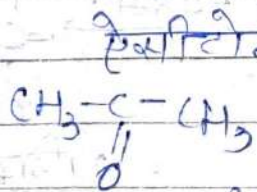 ऐसीटो
CH3-C-CH3
||
O